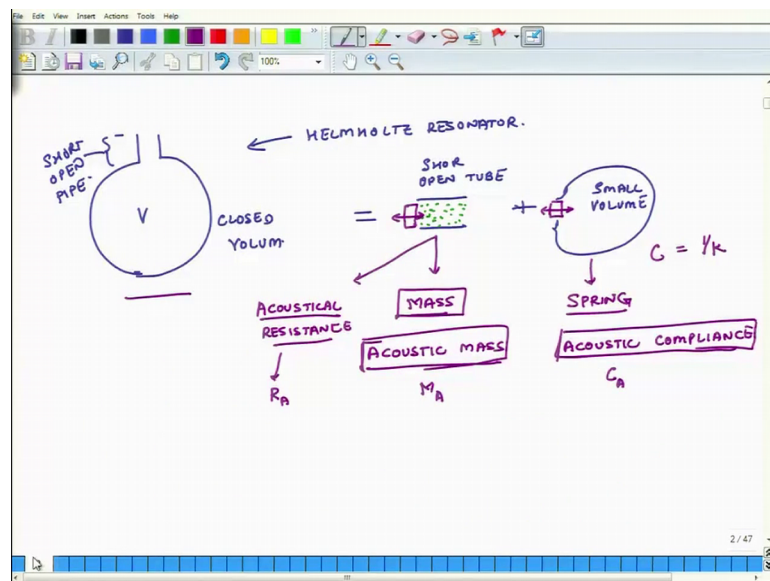 File Edit View Insert Actions Tools Help
B I
100%
HELMHOLTZ RESONATOR.
SHORT
OPEN
PIPE.
V
CLOSED
VOLUM
=
SHOR
OPEN TUBE
+
SMALL
VOLUME
C = 1/K
ACOUSTICAL
RESISTANCE
R_A
MASS
ACOUSTIC MASS
M_A
SPRING
ACOUSTIC COMPLIANCE
C_A
2 / 47